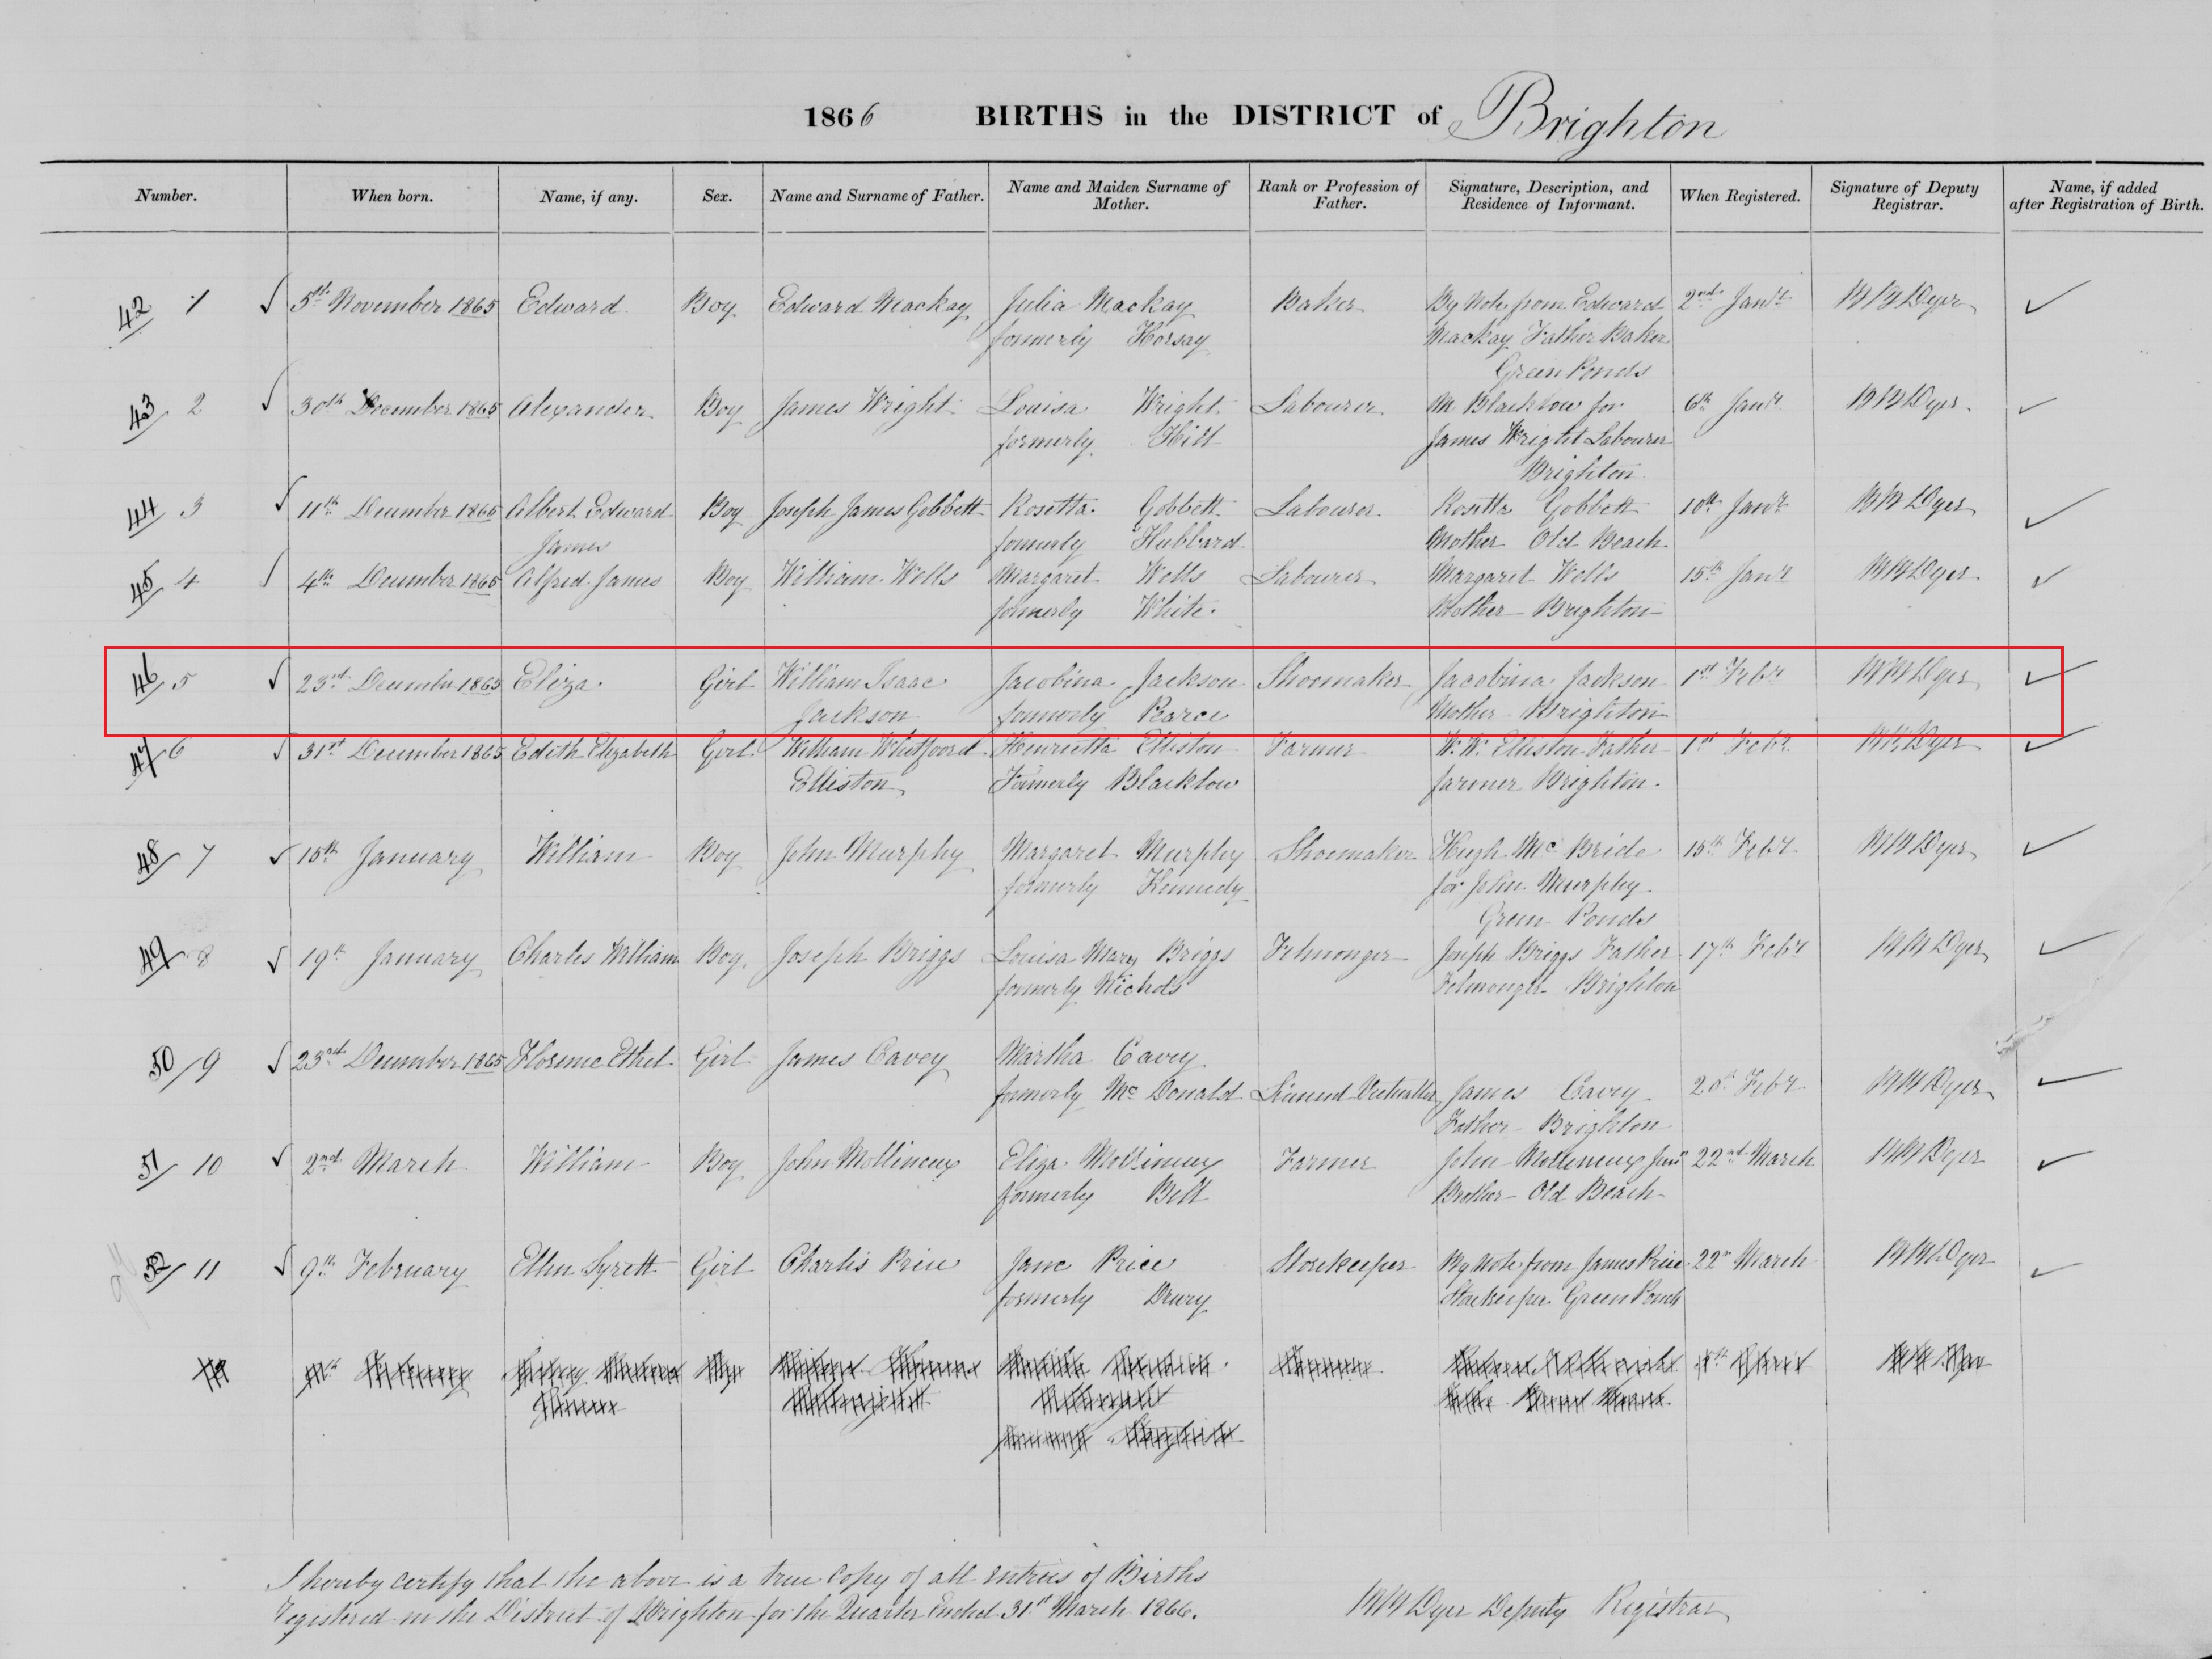 1866 BIRTHS in the DISTRICT of Brighton
Number. When born. Name, if any. Sex. Name and Surname of Father. Name and Maiden Surname of Mother. Rank or Profession of Father. Signature, Description, and Residence of Informant. When Registered. Signature of Deputy Registrar. Name, if added after Registration of Birth.
42/ 1 5th November 1865 Edward Boy Edward Mackay Julia Mackay Baker By Note from Edward 2nd Jany WW Dyer
formerly Horsay Mackay Father Baker
Green Ponds
43/ 2 30th December 1865 Alexander Boy James Wright Louisa Wright Labourer M Blacklow for 6th Jany WW Dyer
formerly Hill James Wright Labourer
Brighton
44/ 3 11th December 1865 Albert Edward Boy Joseph James Gobbett Rosetta Gobbett Labourer Rosetta Gobbett 10th Jany WW Dyer
James formerly Hubbard Mother Old Beach
45/ 4 4th December 1865 Alfred James Boy William Wells Margaret Wells Labourer Margaret Wells 15th Jany WW Dyer
formerly White Mother Brighton
46/ 5 23rd December 1865 Eliza Girl William Isaac Jacobina Jackson Shoemaker Jacobina Jackson 1st Feby WW Dyer
Jackson formerly Pearce Mother Brighton
47/ 6 31st December 1865 Edith Elizabeth Girl William Whitfoord Henrietta Elliston Farmer W. W. Elliston Father 1st Feby WW Dyer
Elliston Formerly Blacklow farmer Brighton.
48/ 7 15th January William Boy John Murphy Margaret Murphy Shoemaker Hugh Mc Bride 15th Feby WW Dyer
formerly Kennedy for John Murphy
Green Ponds
49/ 8 19th January Charles William Boy Joseph Briggs Louisa Mary Briggs Felmonger Joseph Briggs Father 17th Feby WW Dyer
formerly Nichols Felmonger Brighton
50/ 9 23rd December 1865 Florence Ethel Girl James Cavey Martha Cavey
formerly Mc Donald Licensed Victualler James Cavey 20th Feby WW Dyer
Father Brighton
51/ 10 2nd March William Boy John Mollineux Eliza Mollineux Farmer John Molleneux Junr 22nd March WW Dyer
formerly Bell Brother Old Beach
52/ 11 9th February Ellen Syrett Girl Charles Price Jane Price Storekeeper By Note from James Price 22nd March WW Dyer
formerly Drury Storekeeper Green Ponds
I hereby certify that the above is a true Copy of all entries of Births
registered in the District of Brighton for the Quarter Ended 31st March 1866. WW Dyer Deputy Registrar